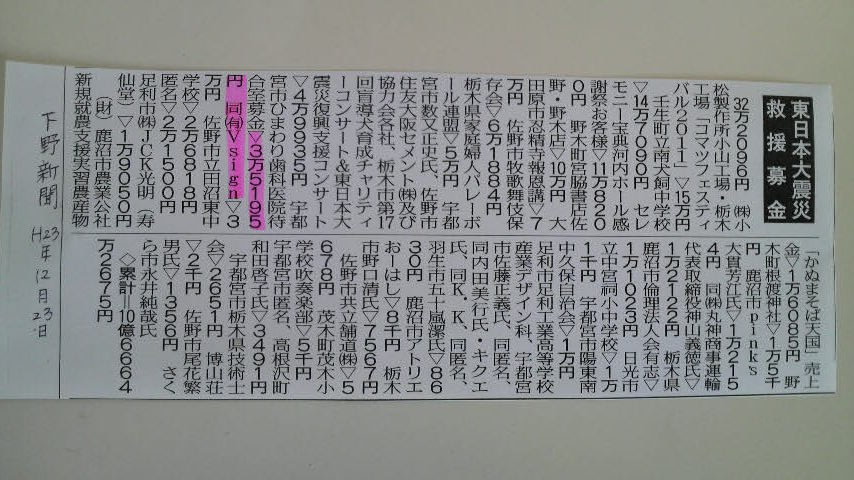 東日本大震災
救援募金
32万2096円 ㈱小
松製作所小山工場・栃木
工場「コマツフェスティ
バル2011」▽15万円
壬生町立南犬飼中学校
▽14万7090円 セレ
モニー宝典河内ホール感
謝祭お客様▽11万820
0円 野木町宮脇書店佐
野・野木店▽10万円 大
田原市忍精寺報恩講▽7
万円 佐野市牧歌舞伎保
存会▽6万1884円
栃木県家庭婦人バレーボ
ール連盟▽5万円 宇都
宮市数又正史氏、佐野市
住友大阪セメント㈱及び
協力会各社、栃木市第17
回盲導犬育成チャリティ
ーコンサート&東日本大
震災復興支援コンサート
▽4万9935円 宇都
宮市ひまわり歯科医院待
合室募金▽3万5195
円 同㈲Vsign▽3
万円 佐野市立田沼東中
学校▽2万6818円
匿名▽2万1500円
足利市㈱JCK光明(寿
仙堂)▽1万9050円
(財)鹿沼市農業公社
新規就農支援実習農産物
「かぬまそば天国」売上
金▽1万6085円 野
木町根渡神社▽1万5千
円 鹿沼市pink's
大貫芳江氏▽1万215
4円 同㈱丸神商事運輸
代表取締役神山義徳氏▽
1万2122円 栃木県
鹿沼市倫理法人会有志▽
1万1023円 日光市
立中宮祠小中学校▽1万
1千円 宇都宮市陽東南
中久保自治会▽1万円
足利市足利工業高等学校
産業デザイン科、宇都宮
市佐藤正義氏、同匿名、
同内田美行氏・キクエ
氏、同K・K、同匿名、
羽生市五十嵐潔氏▽86
30円 鹿沼市アトリエ
おーはし▽8千円 栃木
市野口清氏▽7567円
佐野市共立舗道㈱▽5
678円 茂木町茂木小
学校吹奏楽部▽5千円
宇都宮市匿名、高根沢町
和田啓子氏▽3491円
宇都宮市栃木県技術士
会▽2651円 博山荘
▽2千円 佐野市尾花繁
男氏▽1356円 さく
ら市永井純哉氏
◇累計=10億6664
万2675円
下野新聞 H23年12月23日